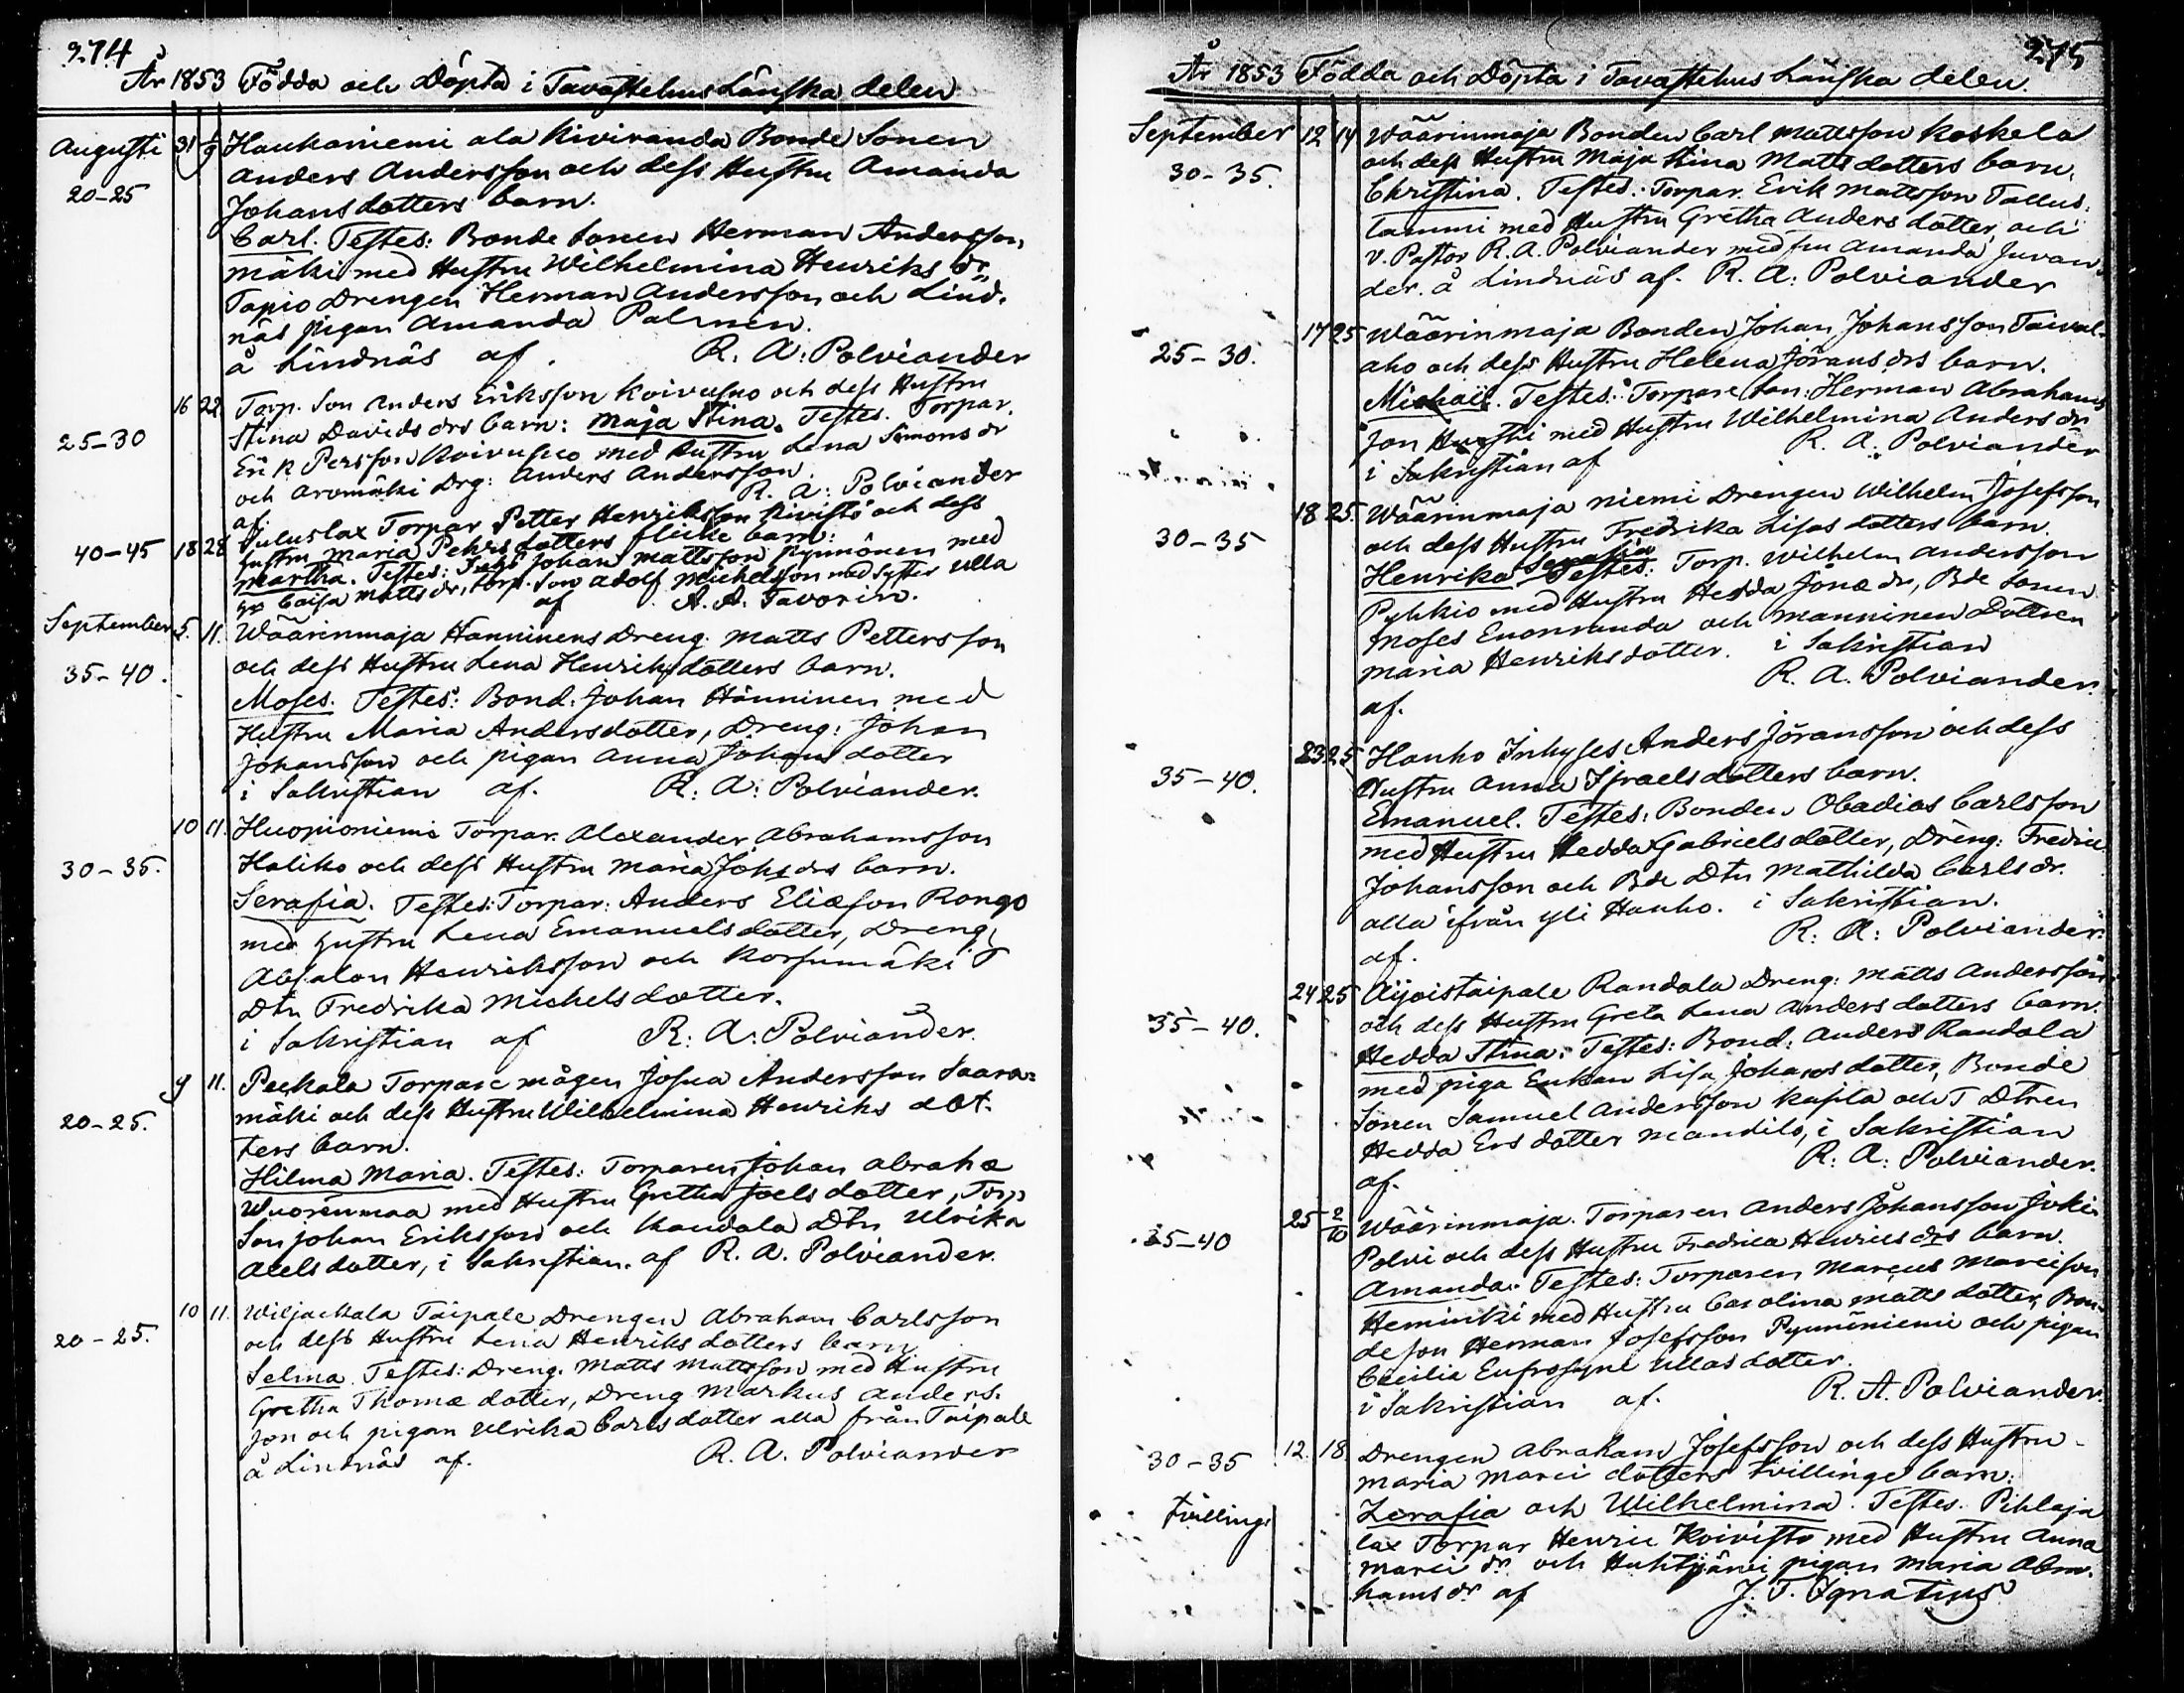 274
År 1853 Födda och Döpta i Tavastehus Länska delen
Augusti 31 Haukaniemi ala Kiviranda Bonde Sonen
20-25 Anders Andersson och dess Hustru Amanda
Johans dotters barn.
Carl. Testes: Bonde Sonen Herman Andersson
mäki med Hustru Wilhelmina Henriks dr,
Tapio Drengen Herman Andersson och Lind-
näs pigan Amanda Palmén.
å Lindnäs af. R. A: Polviander
16 22 Torp. Son Anders Eriksson Koivusuo och dess Hustru
25-30 Stina Davids drs barn: Maja Stina. Testes. Torpar.
Erik Persson Koivusuo med Hustru Lena Simons dr
och Aromäki Drg: Anders Andersson.
af. R. A: Polviander
Puluslax Torpar Petter Henriksson Kivistö och dess
40-45 18 28 Hustru Maria Pehrs dotters flicke barn:
Martha. Testes: Johan Mattsson Pynnönen med
Caisa Matts dr, Torp. Son Adolf Michelsson med Syster Ulla
af A. A. Favorin.
September 5. 11. Wäärinmaja Hanninens Dreng. Matts Pettersson
35-40. och dess Hustru Lena Henriksdotters barn.
Moses. Testes: Bond. Johan Hänninen med
Hustru Maria Andersdotter, Dreng: Johan
Johansson och pigan Anna Johans dotter
i Sakristian af. R. A: Polviander.
10 11. Huopioniemi Torpar. Alexander Abrahamsson
30-35. Haliko och dess Hustru Maria Johs drs barn.
Serafia. Testes: Torpar: Anders Eliæson Rongo
med Hustru Lena Emanuels dotter, Dreng
Absalon Henriksson och Korsumäki
Dtn Fredrika Michels dotter.
i Sakristian af R. A: Polviander.
9 11. Peckala Torpare mågen Josua Andersson Saara-
20-25. mäki och dess Hustru Wilhelmina Henriks dot-
ters barn.
Hilma Maria. Testes: Torparen Johan Abraha
Wuorenmaa med Hustru Gretha Joels dotter, Torp
Son Johan Eriksson och Kandola Dtn Ulrika
Axels dotter, i Sakristian. af R. A. Polviander.
10 11. Wiljackala Taipale Drengen Abraham Carlsson
20-25. och dess Hustru Lena Henriks dotters barn
Selma. Testes: Dreng. Matts Mattsson med Hustru
Gretha Thomæ dotter, Dreng Markus Anders-
son och pigan Ulrika Carls dotter alla från Taipale
å Lindnäs af. R. A. Polviander
275
År 1853 Födda och Döpta i Tavastehus Länska delen.
September 12 14 Wäärinmaja Bonden Carl Mattsson Koskela
30-35. och dess Hustru Maja Stina Matts dotters barn,
Christina. Testes: Torpar. Erik Mattsson Tallus-
lammi med Hustru Gretha Anders dotter, och
v. Pastor R. A. Polviander med fru Amanda Juvan-
der. å Lindnäs af. R. A: Polviander
17 25 Wäärinmaja Bonden Johan Johansson Taival-
25-30. aho och dess Hustru Helena Jörans drs barn.
Michaël. Testes: Torpare Son: Herman Abrahams
son med Hustru Wilhelmina Anders dr
i Sakristian af R. A. Polviander
18 25. Wäärinmaja Niemi Drengen Wilhelm Josefsson
30-35 och dess Hustru Fredrika Lisas dotters barn.
Henrika Serafia Testes: Torp. Wilhelm Andersson
Pyhkio med Hustru Hedda Jonæ dr, Bde Sonen
Moses Enonranda och Manninen Dottren
Maria Henriksdotter. i Sakristian
af. R. A. Polviander.
23 25 Hauho Inhyses Anders Jöransson och dess
35-40. Hustru Anna Israels dotters barn.
Emanuel. Testes: Bonden Obadias Carlsson
med Hustru Hedda Gabriels dotter, Dreng: Fredric
Johansson och Bde Dtn Mathilda Carls dr.
alla ifrån yli Hauho. i Sakristian.
af. R: A: Polviander.
24 25 Äijoistaipale Randala Dreng: Matts Andersson
35-40. och dess Hustru Greta Lena Anders dotters barn.
Hedda Stina. Testes: Bond: Anders Randola
med piga Enkan Lisa Johans dotter, Bonde
Sonen Samuel Andersson Kapila och T Dtren
Hedda Ers dotter Mandila, i Sakristian
af. R: A: Polviander.
25 2/10 Wäärinmaja. Torparen Anders Johansson Joki-
35-40 Polvi och dess Hustru Fredrica Henrics drs barn.
Amanda. Testes: Torparen Marcus Marcisson
Heminki med Hustru Carolina Matts dotter, Bon-
deson Herman Josefsson Pynnöniemi och pigan
Cecilia Eufrosyne Ullas dotter.
i Sakristian af. R. A. Polviander.
12. 18. Drengen Abraham Josefsson och dess Hustru
30-35 Maria Marci dotters tvillinge barn:
tvilling: Zerafia och Wilhelmina. Testes. Pihlaja
lax Torpar Henric Koivisto med Hustru Anna
Marci dr. och Huhtjärvi pigan Maria Abra-
hams dr af J. F. Ignatius